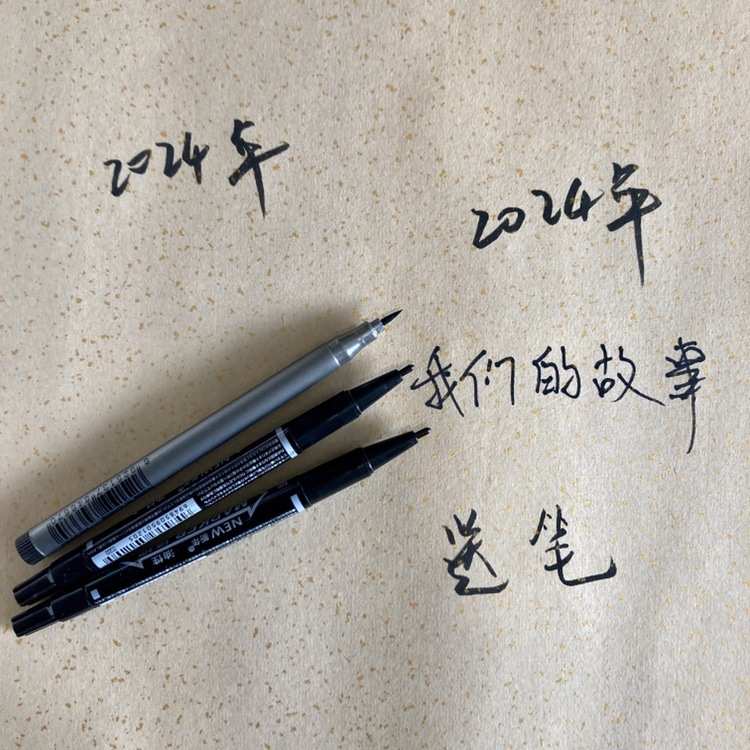 2024年
2024年
我们的故事
送笔
NEW
油性